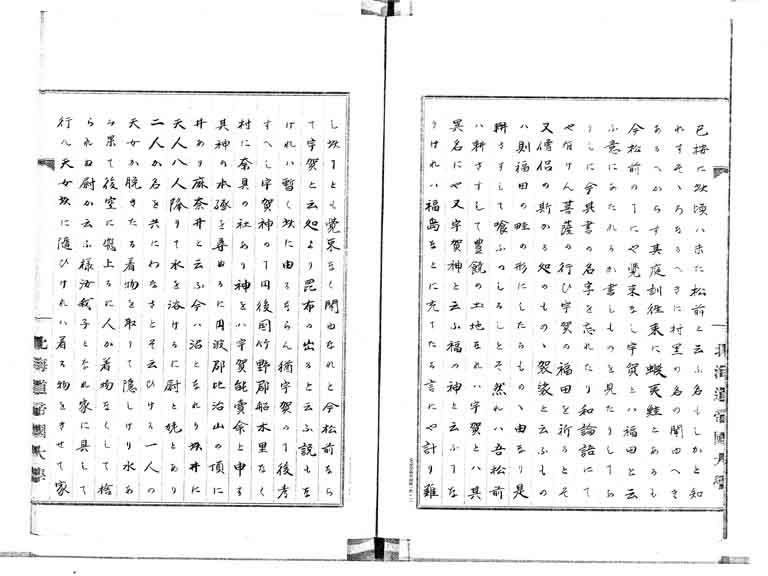 已接に玆頃ハ未た松前と云ふ名もしかと知
れすそゝろなるへきに村里の名の聞由へき
あるへからす其庭訓往来に蝦夷鮭とあるも
今松前のヿにや覚束なし宇賀とハ福田と云
ふ意にあたれるか書しものを見たりしてあ
りしに今其書の名字を忘れたり和論語にて
やなけん菩薩の行ひ宇賀の福田を祈るとそ
又僧侶の斯かる処のものゝ袈裟と云ふもの
ハ則福田の畦の形にしたるものゝ由なり是
耕さすして喰ふのしるしとそ然れハ吾松前
ハ耕さすして豊饒の土地をれハ宇賀とハ其
異名にや又宇賀神と云ふ福の神と云ふヿな
りけれハ福島をとに充てたる言にや計り難
し玆ヿとも覚束なく聞由なれと今松前なら
て宇賀と云処より昆布の出ると云ふ説もを
けれハ暫く玆に由るならん猶宇賀のヿ後考
すへし宇賀神のヿ丹後国竹野郡船木里なく
村に奈具の社あり神をハ宇賀能賣命と申る
其神の本縁を尋ぬるに丹波郡比治山の頂に
井あり麻奈井と云ふ今ハ沼となれり玆井に
天人八人降りて水を浴けるに尉と姥とあり
二人か名を共にわなさとそ云ひける一人の
天女か脱きたる着物を取りて隠しけり水あ
み果て後空に飛上るに人か着物なくして捨
られ田尉か云ふ様汝我子となれ家に具して
行ん天女玆に随ひけれハ着る物をきせて家
北海道帝國大學
北海道帝國大學